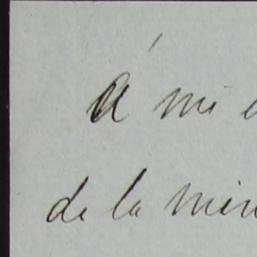 Á mi
de la